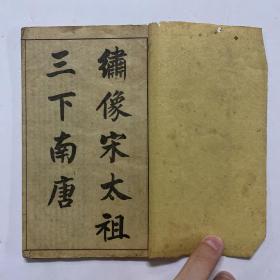 繡像宋太祖
三下南唐